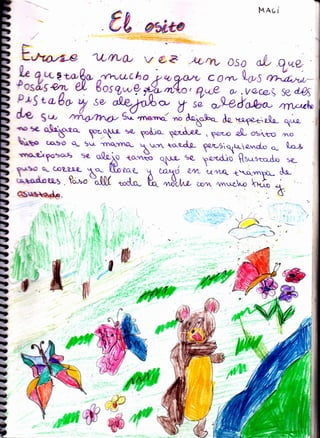 MAGÍ
El osito
Erase una vez un oso al que
le gustaba mucho jugar con las mari-
posas en el bosque tanto, que a veces se des
pistaba y se alejaba y se alejaba mucho
de su mama Su mama no dejaba de repetirle que
no se alejara porque se podia perder, pero el osito no
hizo caso a su mama y un tarde persiguiendo a las
mariposas se alejo tanto que se perdio Asustado se
puso a correr y a llorar y cayó en una trampa de
cazadores. Paso allí toda la noche con mucho frio y
asustado.